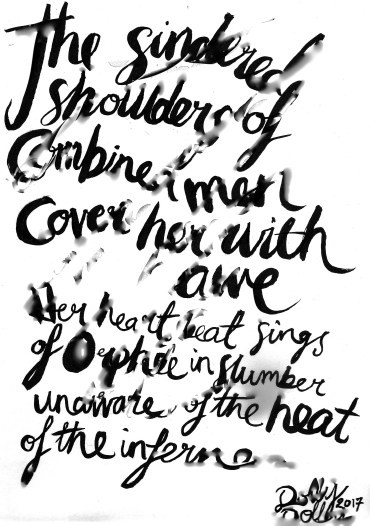 The sindered
shoulders of
Combined men
Cover her with
awe
Her heart beat sings
of Orphée in slumber
unaware of the heat
of the inferno
2017